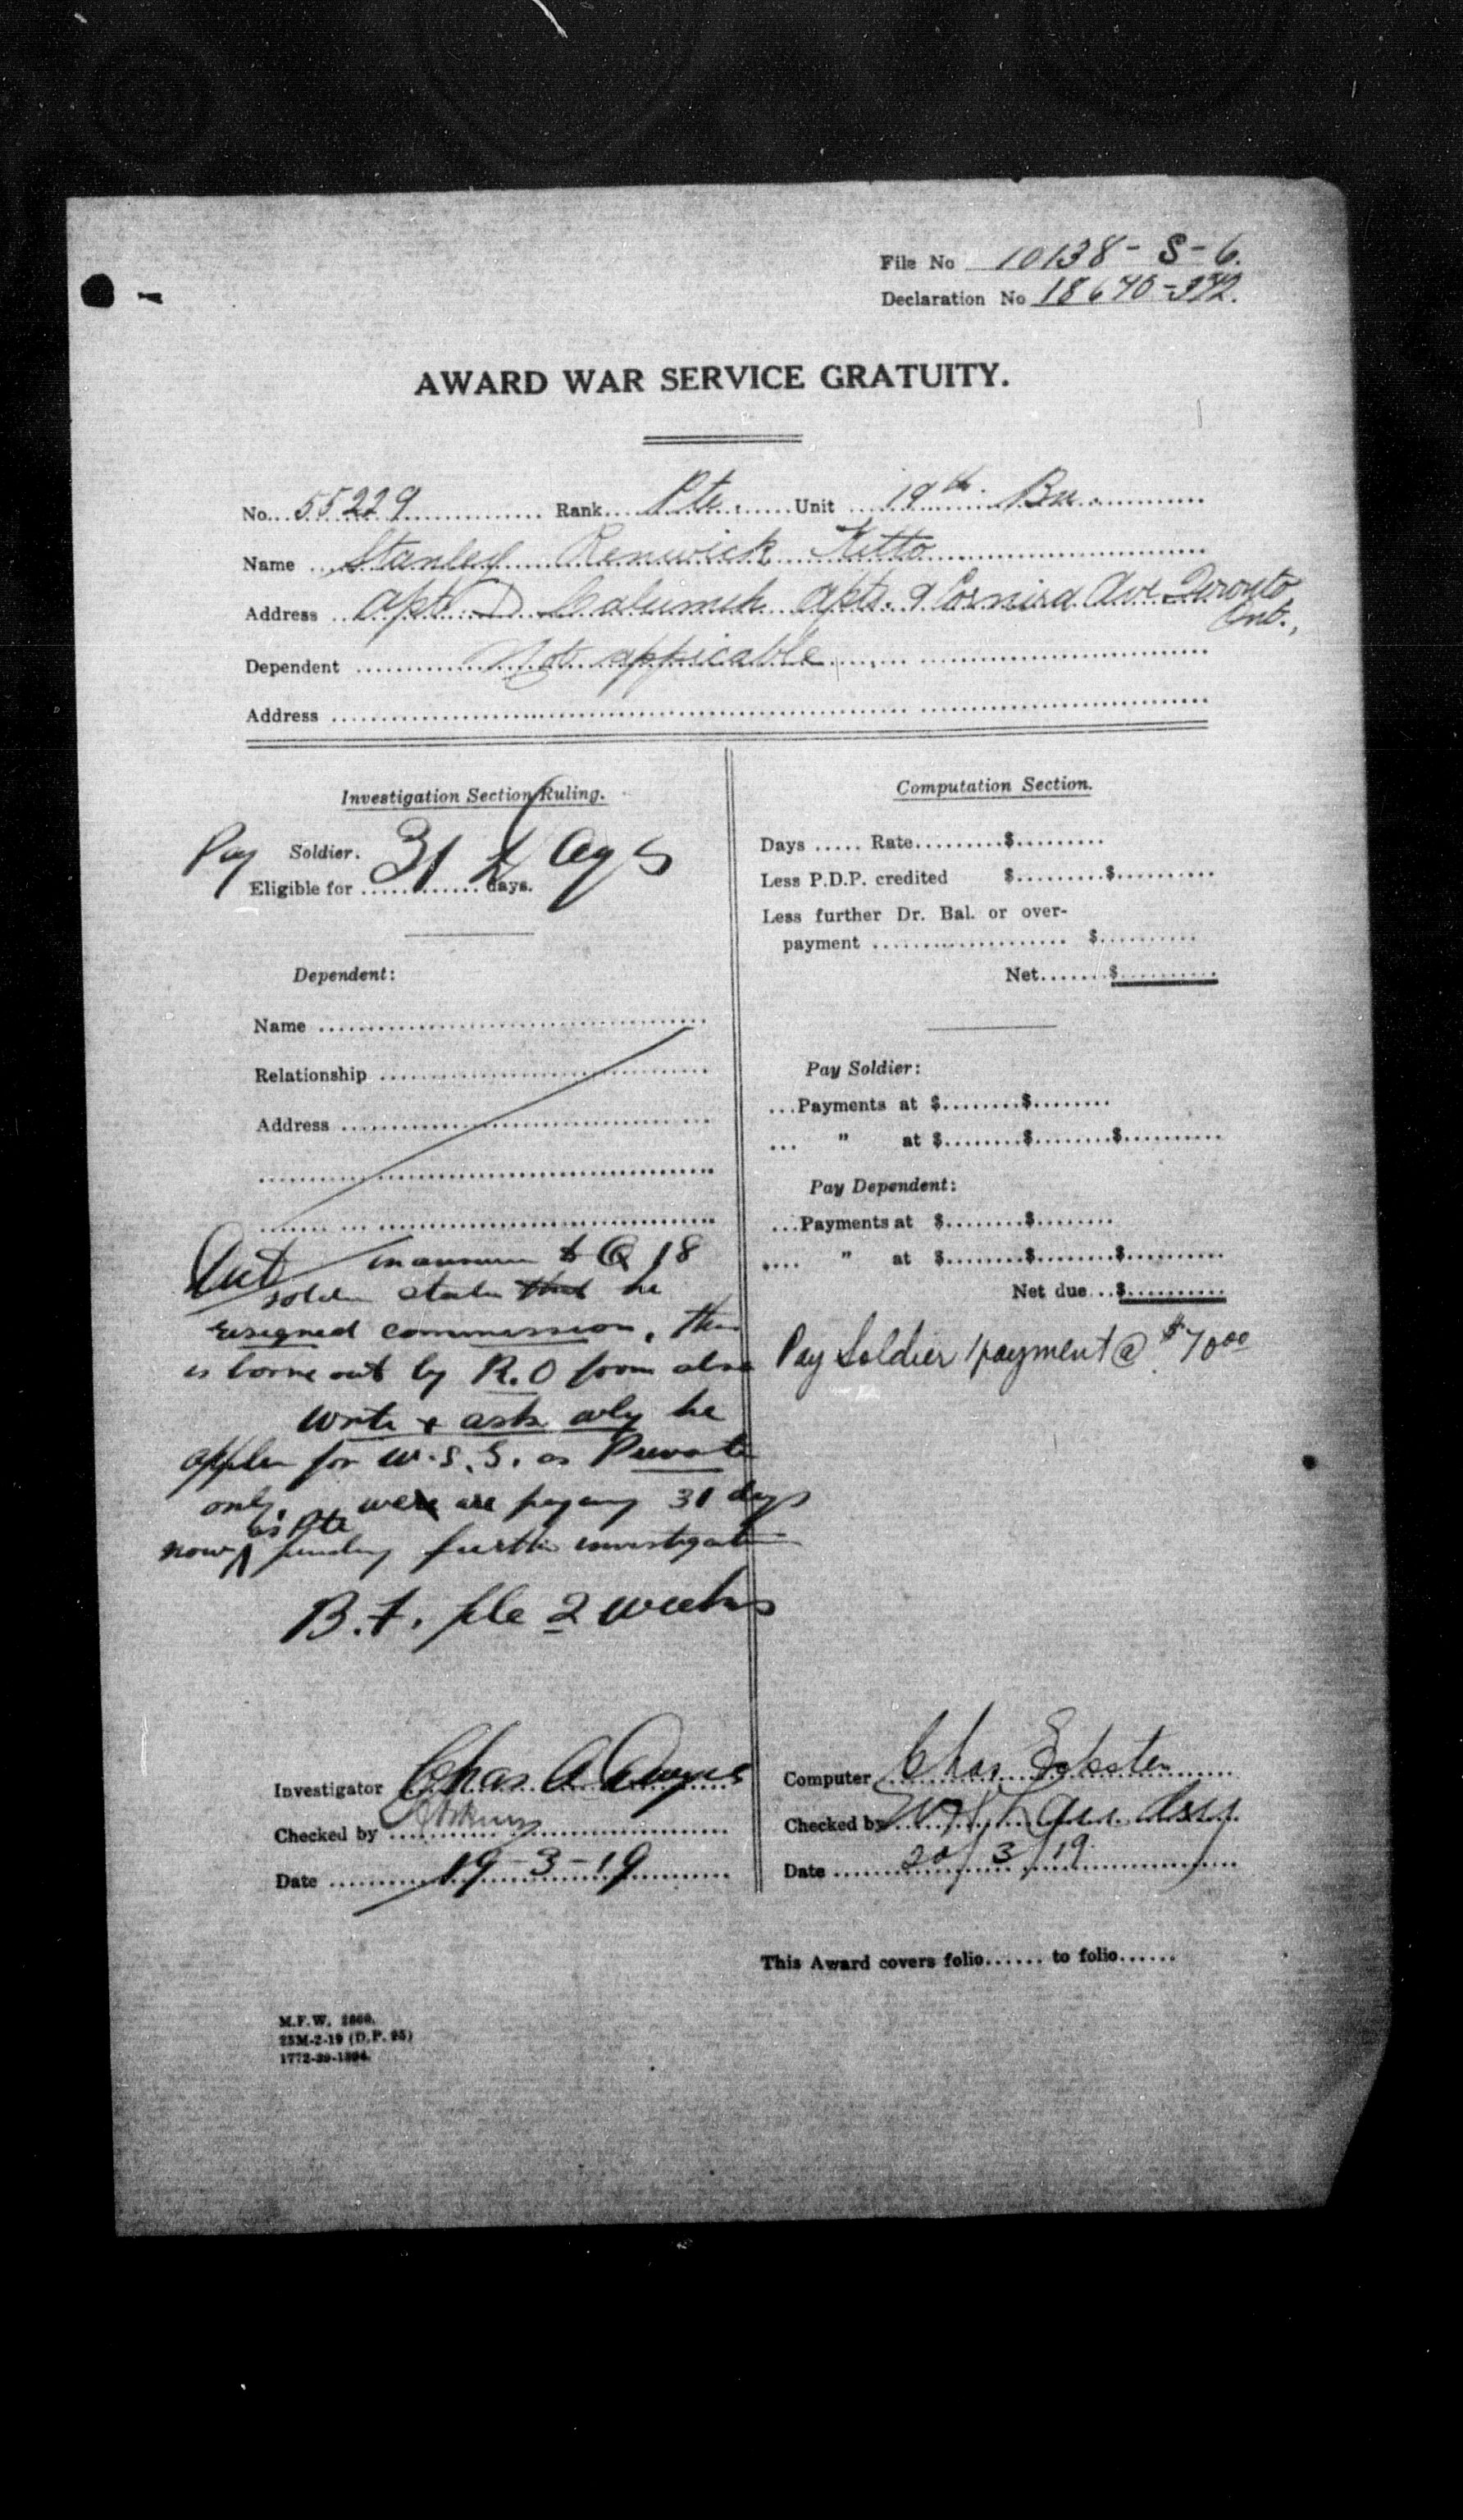 File No 10138-S-6.
Declaration No 18640-372.
AWARD WAR SERVICE GRATUITY.
No. 55229 Rank Pte. Unit 19th Bn.
Name Stanley Renwick Kitto
Address Apt. D Apts. 9 Ave Toronto
Ont.,
Dependent Not appicable
Address
Investigation Section Ruling.
Pay Soldier. 31 days
Eligible for days.
Dependent:
Name
Relationship
Address
Aut to Q 18
soldier states that he
resigned commission. This
is borne out by R.O form also
Write & ask why he
applies for W.S.G. as Private
only. were are paying 31 days
as Pte
now pending further investigation
B.F. file 2 weeks
Investigator Chas A
Checked by
Date 19-3-19
Computation Section.
Days ..... Rate.........$.........
Less P.D.P. credited $.........$..........
Less further Dr. Bal. or over-
payment .................... $..........
Net.......$..........
Pay Soldier:
...Payments at $........$........
... " at $........$........$..........
Pay Dependent:
...Payments at $........$........
.... " at $........$........$..........
Net due...$..........
Pay Soldier 1 payment @ $70.00
Computer Chas
Checked by Landry
Date 20/3/19
This Award covers folio...... to folio......
M.F.W. 2860.
25M-2-19 (D.P. 95)
1772-39-1394.